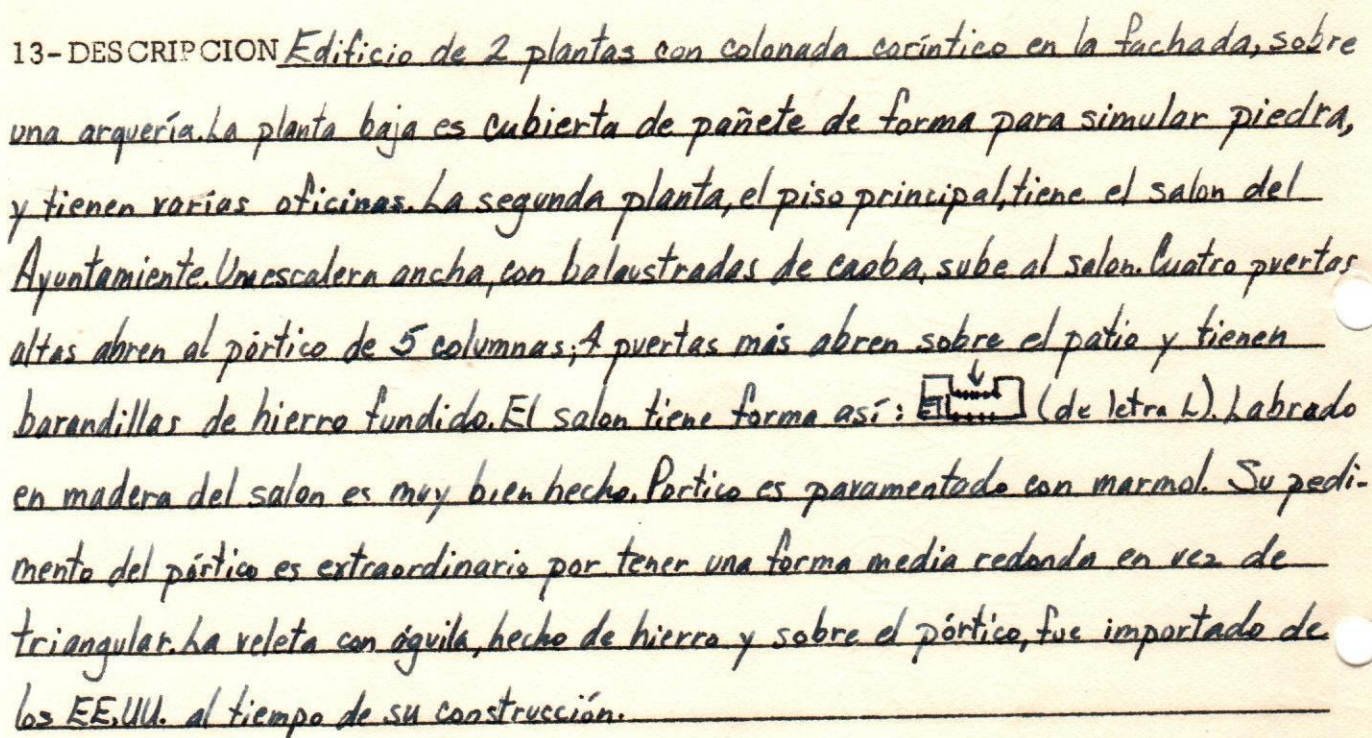 13-DESCRIPCION Edificio de 2 plantas con colonada coríntico en la fachada, sobre
una arquería. La planta baja es cubierta de pañete de forma para simular piedra,
y tienen varias oficinas. La segunda planta, el piso principal, tiene el salon del
Ayuntamiente. Una escalera ancha, con balaustradas de caoba, sube al salon. Cuatro puertas
altas abren al pórtico de 5 columnas; 4 puertas más abren sobre el patio y tienen
barandillas de hierro fundido. El salon tiene forma así: (de letra L). Labrado
en madera del salon es muy bien hecho. Portico es pavamentado con marmol. Su pedi-
mento del pórtico es extraordinario por tener una forma media redonda en vez de
triangular. La veleta con águila, hecho de hierro y sobre el pórtico, fue importado de
los EE.UU. al tiempo de su construcción.